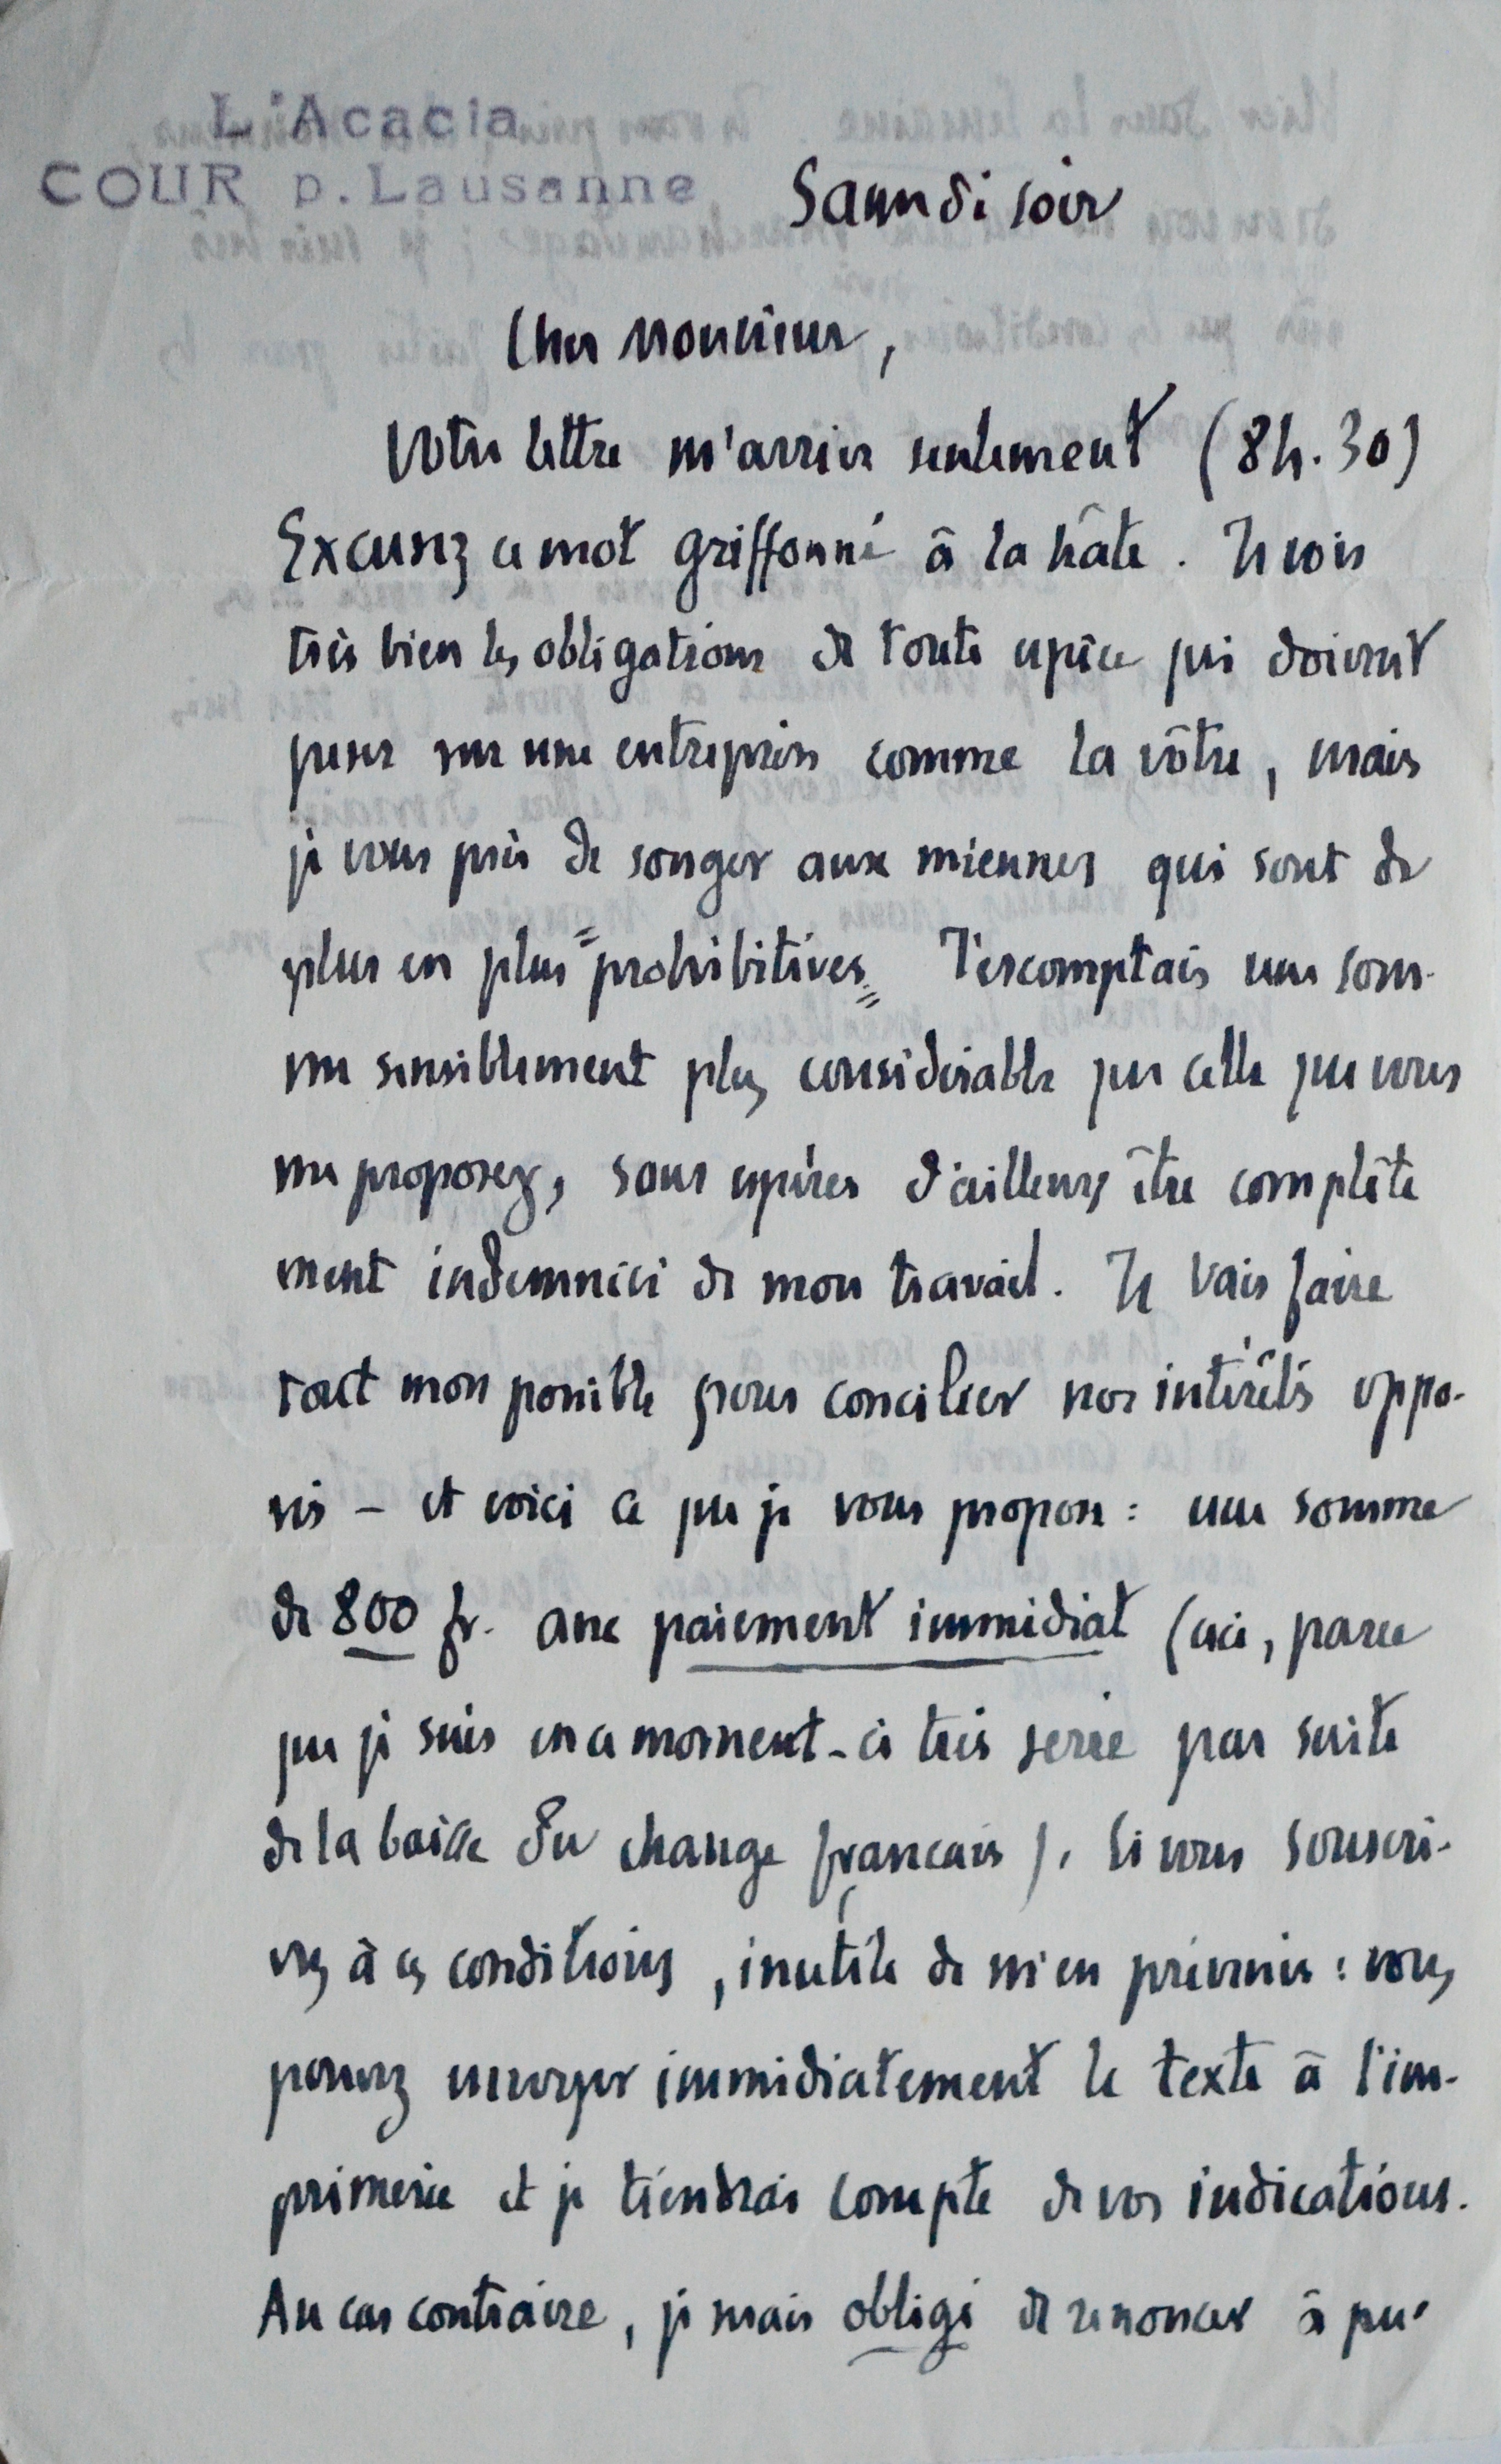 L'Acacia
COUR p. Lausanne
Samedi soir
Cher Monsieur,
Votre lettre m'arrive seulement (8h.30)
Excusez ce mot griffonné à la hâte. Je vois
très bien les obligations de toute espèce qui doivent
peser sur une entreprise comme la vôtre, mais
je vous prie de songer aux miennes qui sont de
plus en plus "prohibitives". J'escomptais une som-
me sensiblement plus considérable que celle que vous
me proposez, sans espérer d'ailleurs être complète
ment indemnisé de mon travail. Je vais faire
tout mon possible pour concilier nos intérêts oppo-
sés – et voici ce que je vous propose : une somme
de 800 fr. avec paiement immédiat (ceci, parce
que je suis en ce moment-ci très serré par suite
de la baisse du change français). Si vous souscri-
vez à ces conditions, inutile de m'en prévenir : vous
pouvez envoyer immédiatement le texte à l'im-
primerie et je tiendrai compte de vos indications.
Au cas contraire, je serais obligé de renoncer à pu-